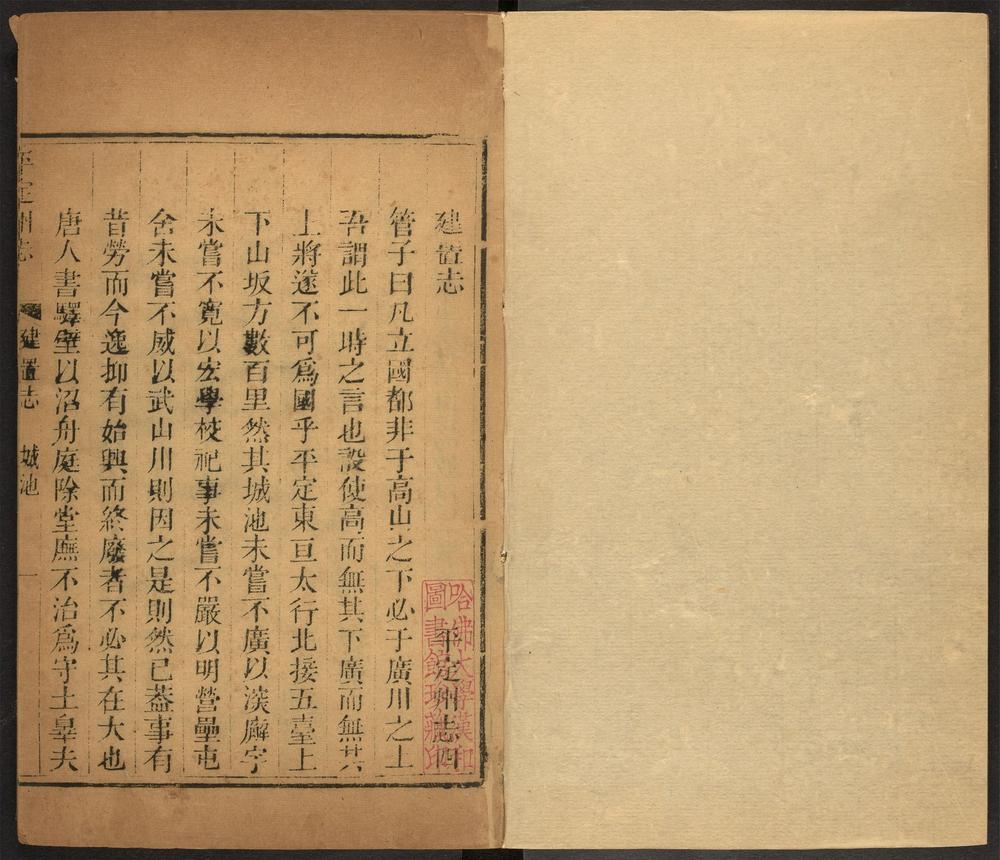 建置志 平定州志四
管子曰凡立國都非于高山之下必于廣川之上
吾謂此一時之言也設使高而無其下廣而無其
上將遂不可爲國乎平定東亘太行北接五臺上
下山坂方數百里然其城池未嘗不廣以淡廨宇
未嘗不寛以宏學校祀事未嘗不嚴以明營壘屯
舍未嘗不威以武山川則因之是則然已葢事有
昔勞而今逸抑有始興而終廢者不必其在大也
唐人書驛壁以沼舟庭除堂廡不治爲守土辠夫
平定州志 建置志 城池 一
哈佛大學漢和
圖書館珍藏印